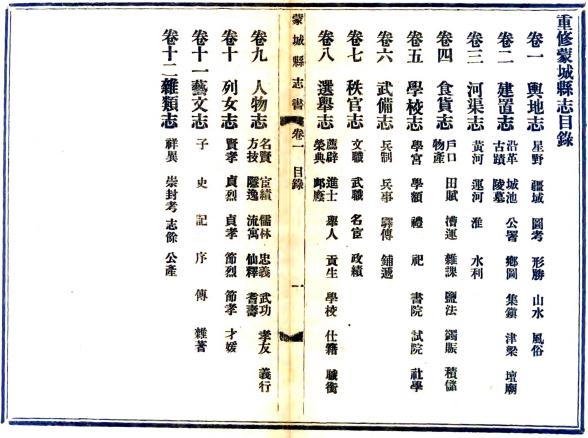 重修蒙城縣志目錄
卷一 輿地志 星野 疆域 圖考 形勝 山水 風俗
卷二 建置志 沿革 城池 公署 鄉圖 集鎮 津梁 壇廟 古蹟 陵墓
卷三 河渠志 黃河 運河 淮 水利
卷四 食貨志 戶口 田賦 漕運 雜課 鹽法 蠲賑 積儲 物產
卷五 學校志 學宮 學額 禮 祀 書院 試院 社學
卷六 武備志 兵制 兵事 驛傳 鋪遞
卷七 秩官志 文職 武職 名宦 政績
卷八 選舉志 薦辟 進士 舉人 貢生 學校 仕籍 職銜 榮典 卹廕
蒙城縣志書 卷一 目錄 一
卷九 人物志 名賢 宦績 儒林 忠義 武功 孝友 義行 方技 隱逸 流寓 仙釋 耆壽
卷十 列女志 賢孝 貞烈 貞孝 節烈 節孝 才媛
卷十一 藝文志 子 史 記 序 傳 雜著
卷十二 雜類志 祥異 崇封考 志餘 公產